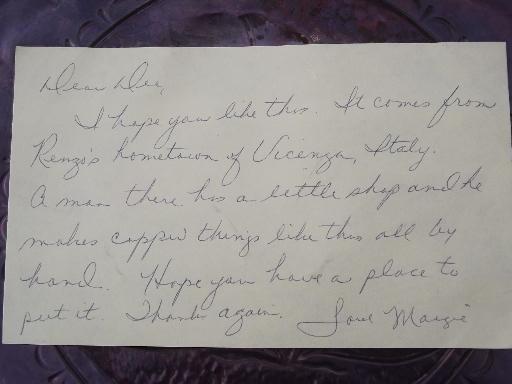 Dear Dee,
I hope you like this. It comes from
Renzo's hometown of Vicenza, Italy.
A man there has a little shop and he
makes copper things like this all by
hand. Hope you have a place to
put it. Thanks again. Love Margie